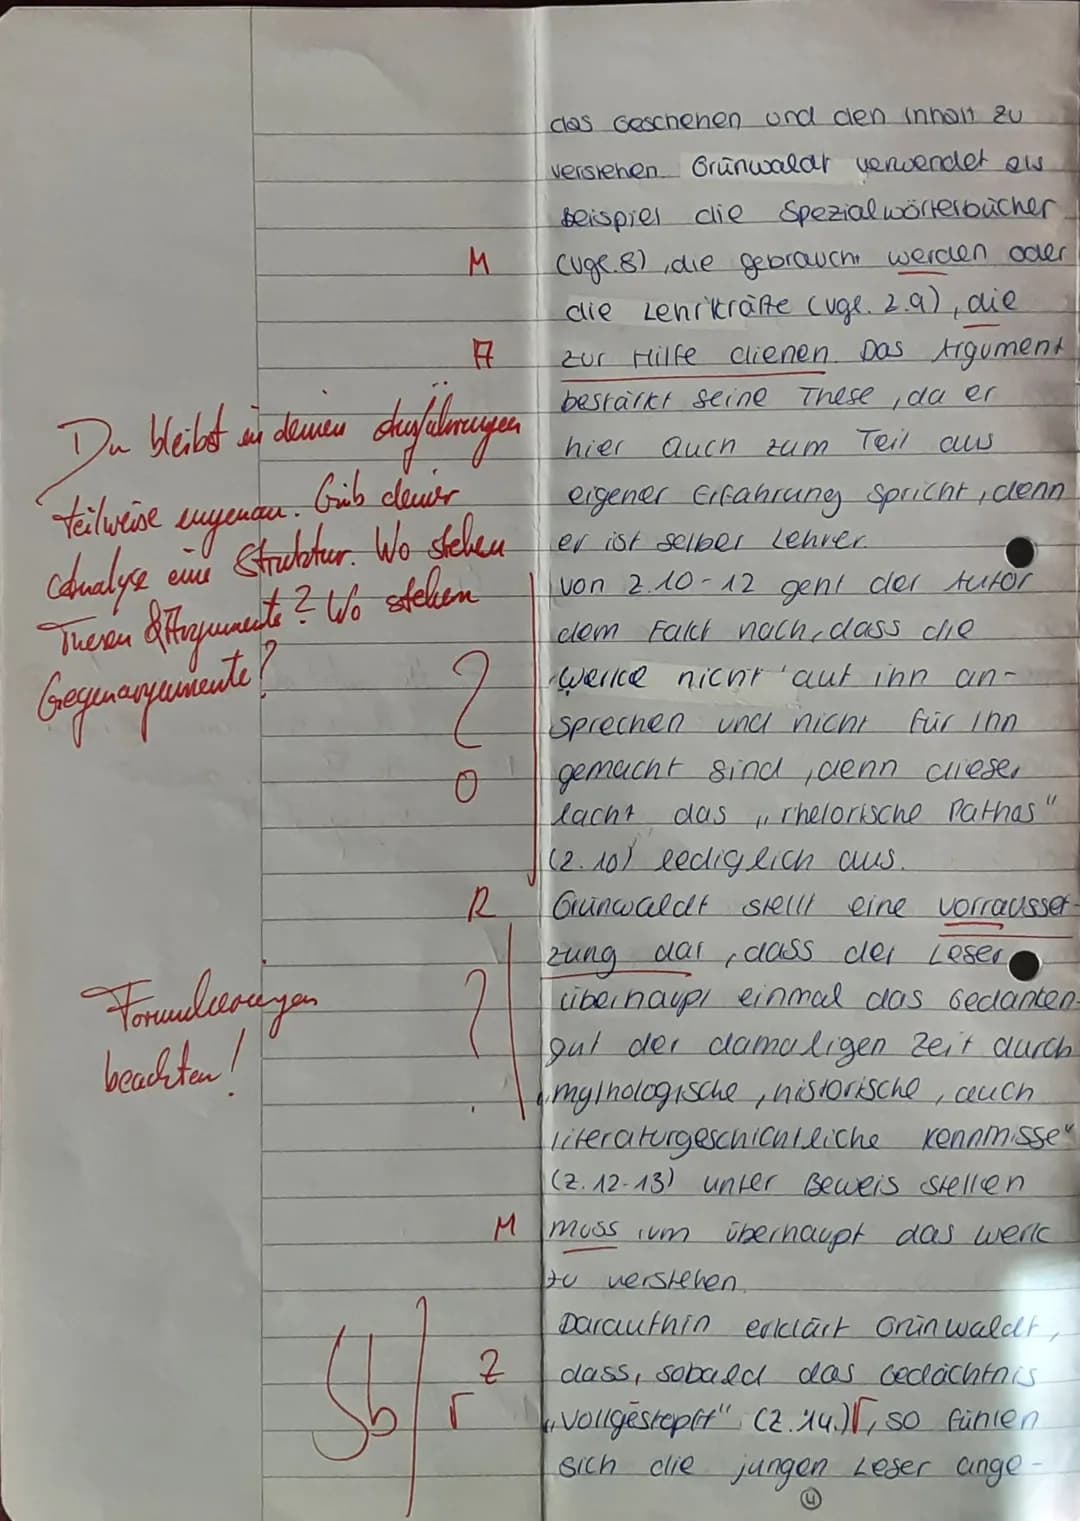 das Geschehen und den Inhalt zu
verstehen. Grünwaldt verwendet als
Beispiel die Spezialwörterbücher
M (vgl. 8), die gebraucht werden oder
die Lehrkräfte (vgl. Z.9), die
A zur Hilfe dienen. Das Argument
bestärkt seine These, da er
hier auch zum Teil aus
eigener Erfahrung spricht, denn
er ist selber Lehrer.
Du bleibst in deinen Ausführungen
teilweise ungenau. Gib deiner
Analyse eine Struktur. Wo stehen
Thesen & Argumente? Wo stehen
Gegenargumente?
von Z.10-12 geht der Autor
dem Fakt nach, dass die
Werke nicht auf ihn an-
? sprechen und nicht für ihn
O gemacht sind, denn dieser
lacht das „rhetorische Pathos"
(Z.10) lediglich aus.
R Grünwaldt stellt eine Vorrausset-
zung dar, dass der Leser
? überhaupt einmal das Gedanken-
gut der damaligen Zeit durch
„mythologische, historische, auch
literaturgeschichtliche Kenntnisse"
(Z.12-13) unter Beweis stellen
M muss, um überhaupt das Werk
zu verstehen.
Formulierungen
beachten!
Darauthin erklärt Grünwaldt,
Sb Z dass, sobald das Gedächtnis
Γ „vollgestopft" (Z.14.)Γ, so fühlen
sich die jungen Leser ange-
4